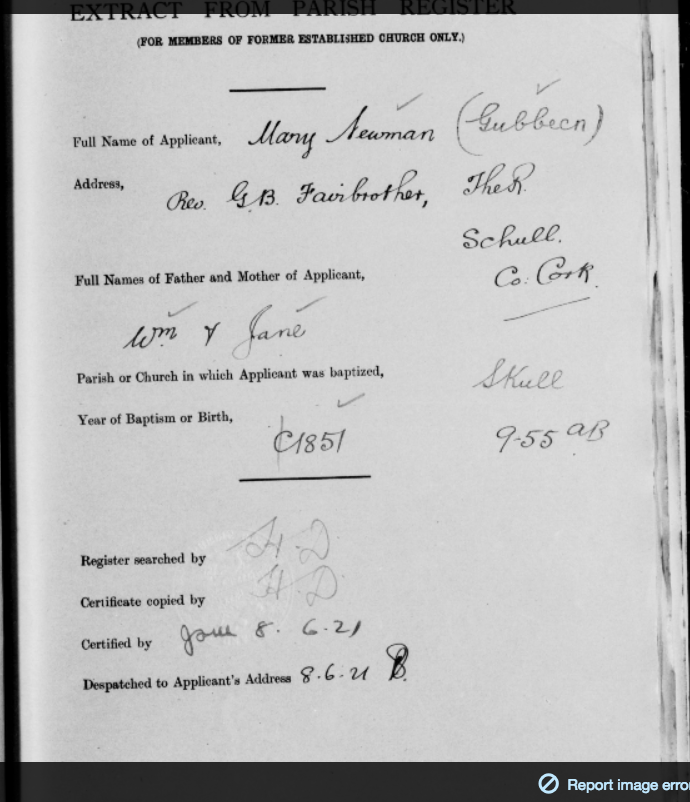 EXTRACT FROM PARISH REGISTER
(FOR MEMBERS OF FORMER ESTABLISHED CHURCH ONLY.)
Full Name of Applicant, Mary Newman (Gubbeen)
Address, Rev. G.B. Fairbrother, The R.
Schull.
Full Names of Father and Mother of Applicant, Co. Cork.
Wm & Jane
Parish or Church in which Applicant was baptized, Skull
Year of Baptism or Birth,
C1851 9-55 aB
Register searched by H.D.
Certificate copied by H.D.
Certified by 8.6.21
Despatched to Applicant's Address 8.6.21 B.
Report image erro